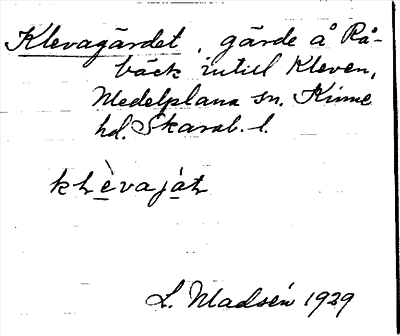 Klevagärdet, gärde å Rå-
bäck intill Kleven,
Medelplana sn. Kinne
hd. Skarab. l.
L. Madsén 1929